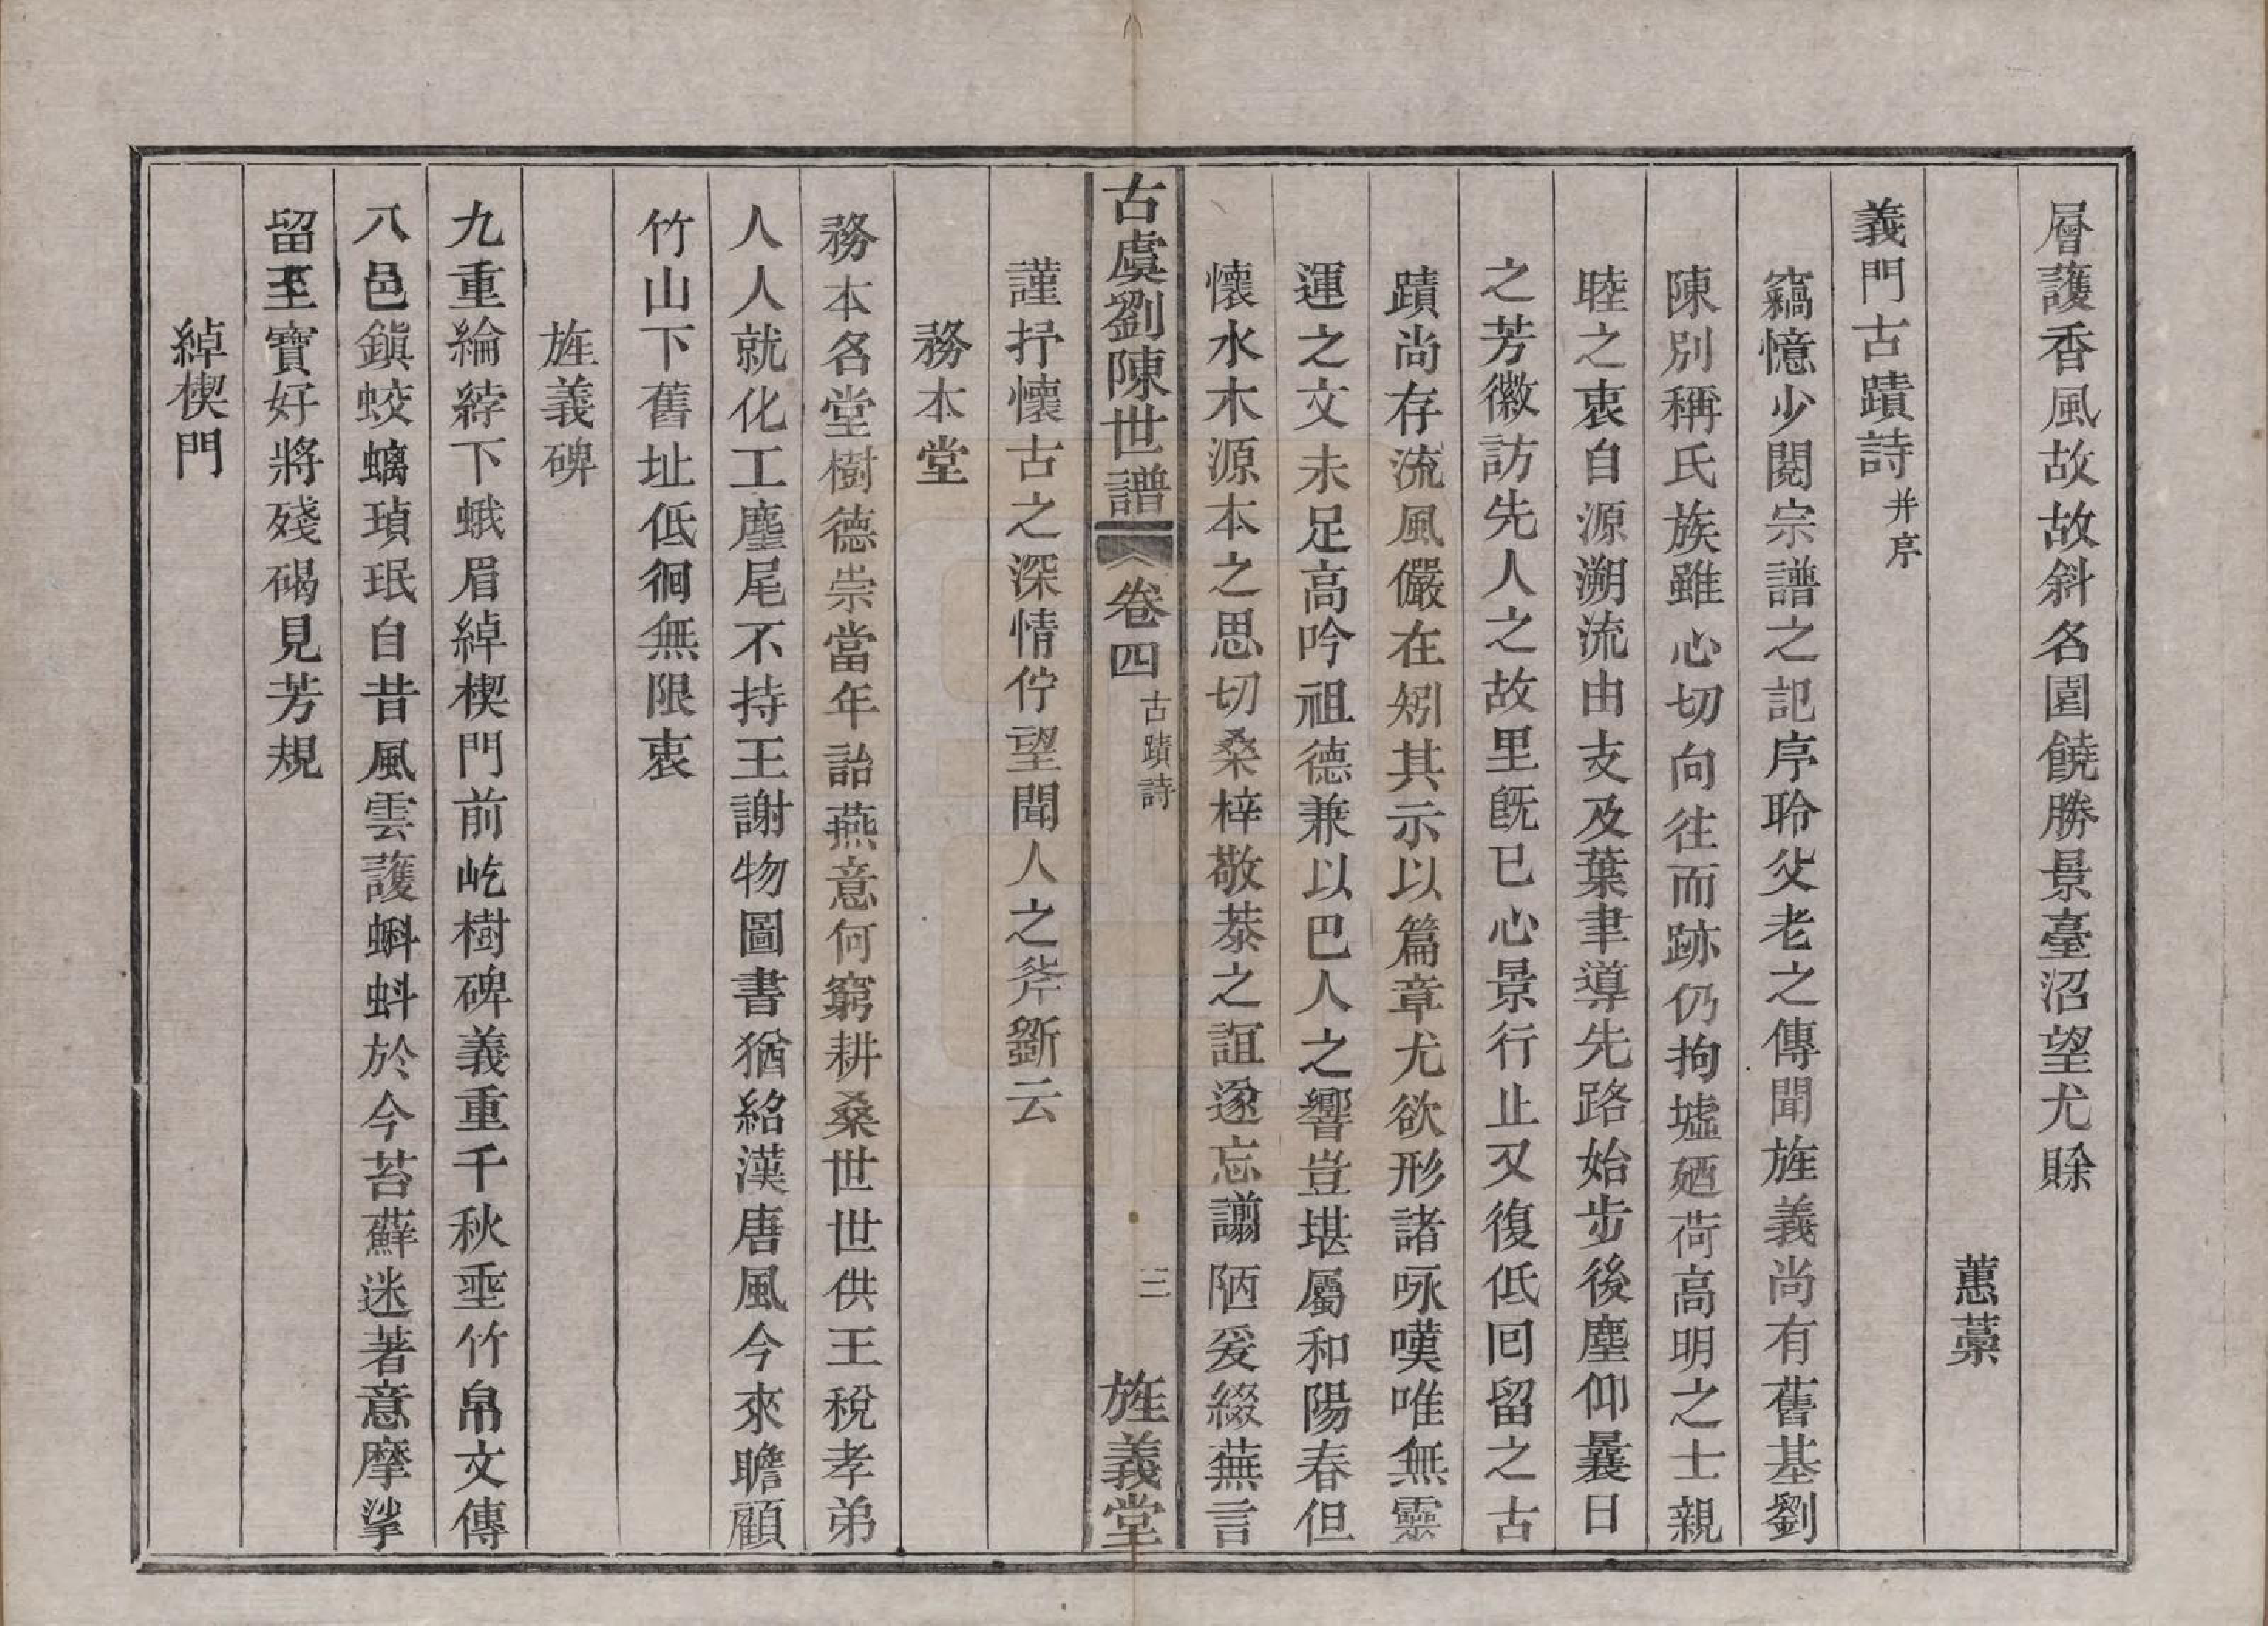 層護香風故故斜名園饒勝景臺沼望尤賒
蕙藁
義門古蹟詩并序
竊憶少閱宗譜之記序聆父老之傳聞旌義尚有舊基劉
陳別稱氏族雖心切向往而跡仍拘墟廼荷高明之士親
睦之衷自源溯流由支及葉聿導先路始步後塵仰曩日
之芳徽訪先人之故里旣已心景行止又復低回留之古
蹟尚存流風儼在矧其示以篇章尤欲形諸咏嘆唯無靈
運之文未足高吟祖德兼以巴人之響豈堪屬和陽春但
懷水木源本之思切桑梓敬恭之誼遂忘譾陋爰綴蕪言
古虞劉陳世譜
卷四
古蹟詩
三
旌義堂
謹抒懷古之深情佇望聞人之斧斲云
務本堂
務本名堂樹德崇當年詒燕意何窮耕桑世世供王稅孝弟
人人就化工麈尾不持王謝物圖書猶紹漢唐風今來瞻顧
竹山下舊址低徊無限衷
旌義碑
九重綸綍下蛾眉綽楔門前屹樹碑義重千秋垂竹帛文傳
八邑鎮蛟螭瑱珉自昔風雲護蝌蚪於今苔蘚迷著意摩挲
留至寶好將殘碣見芳規
綽楔門